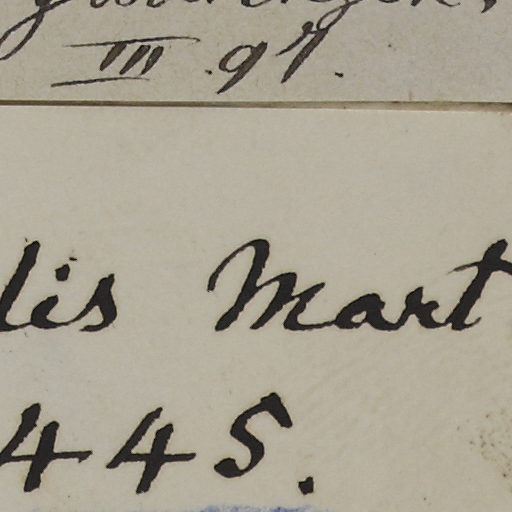 III. 97.
lis Mart
445.